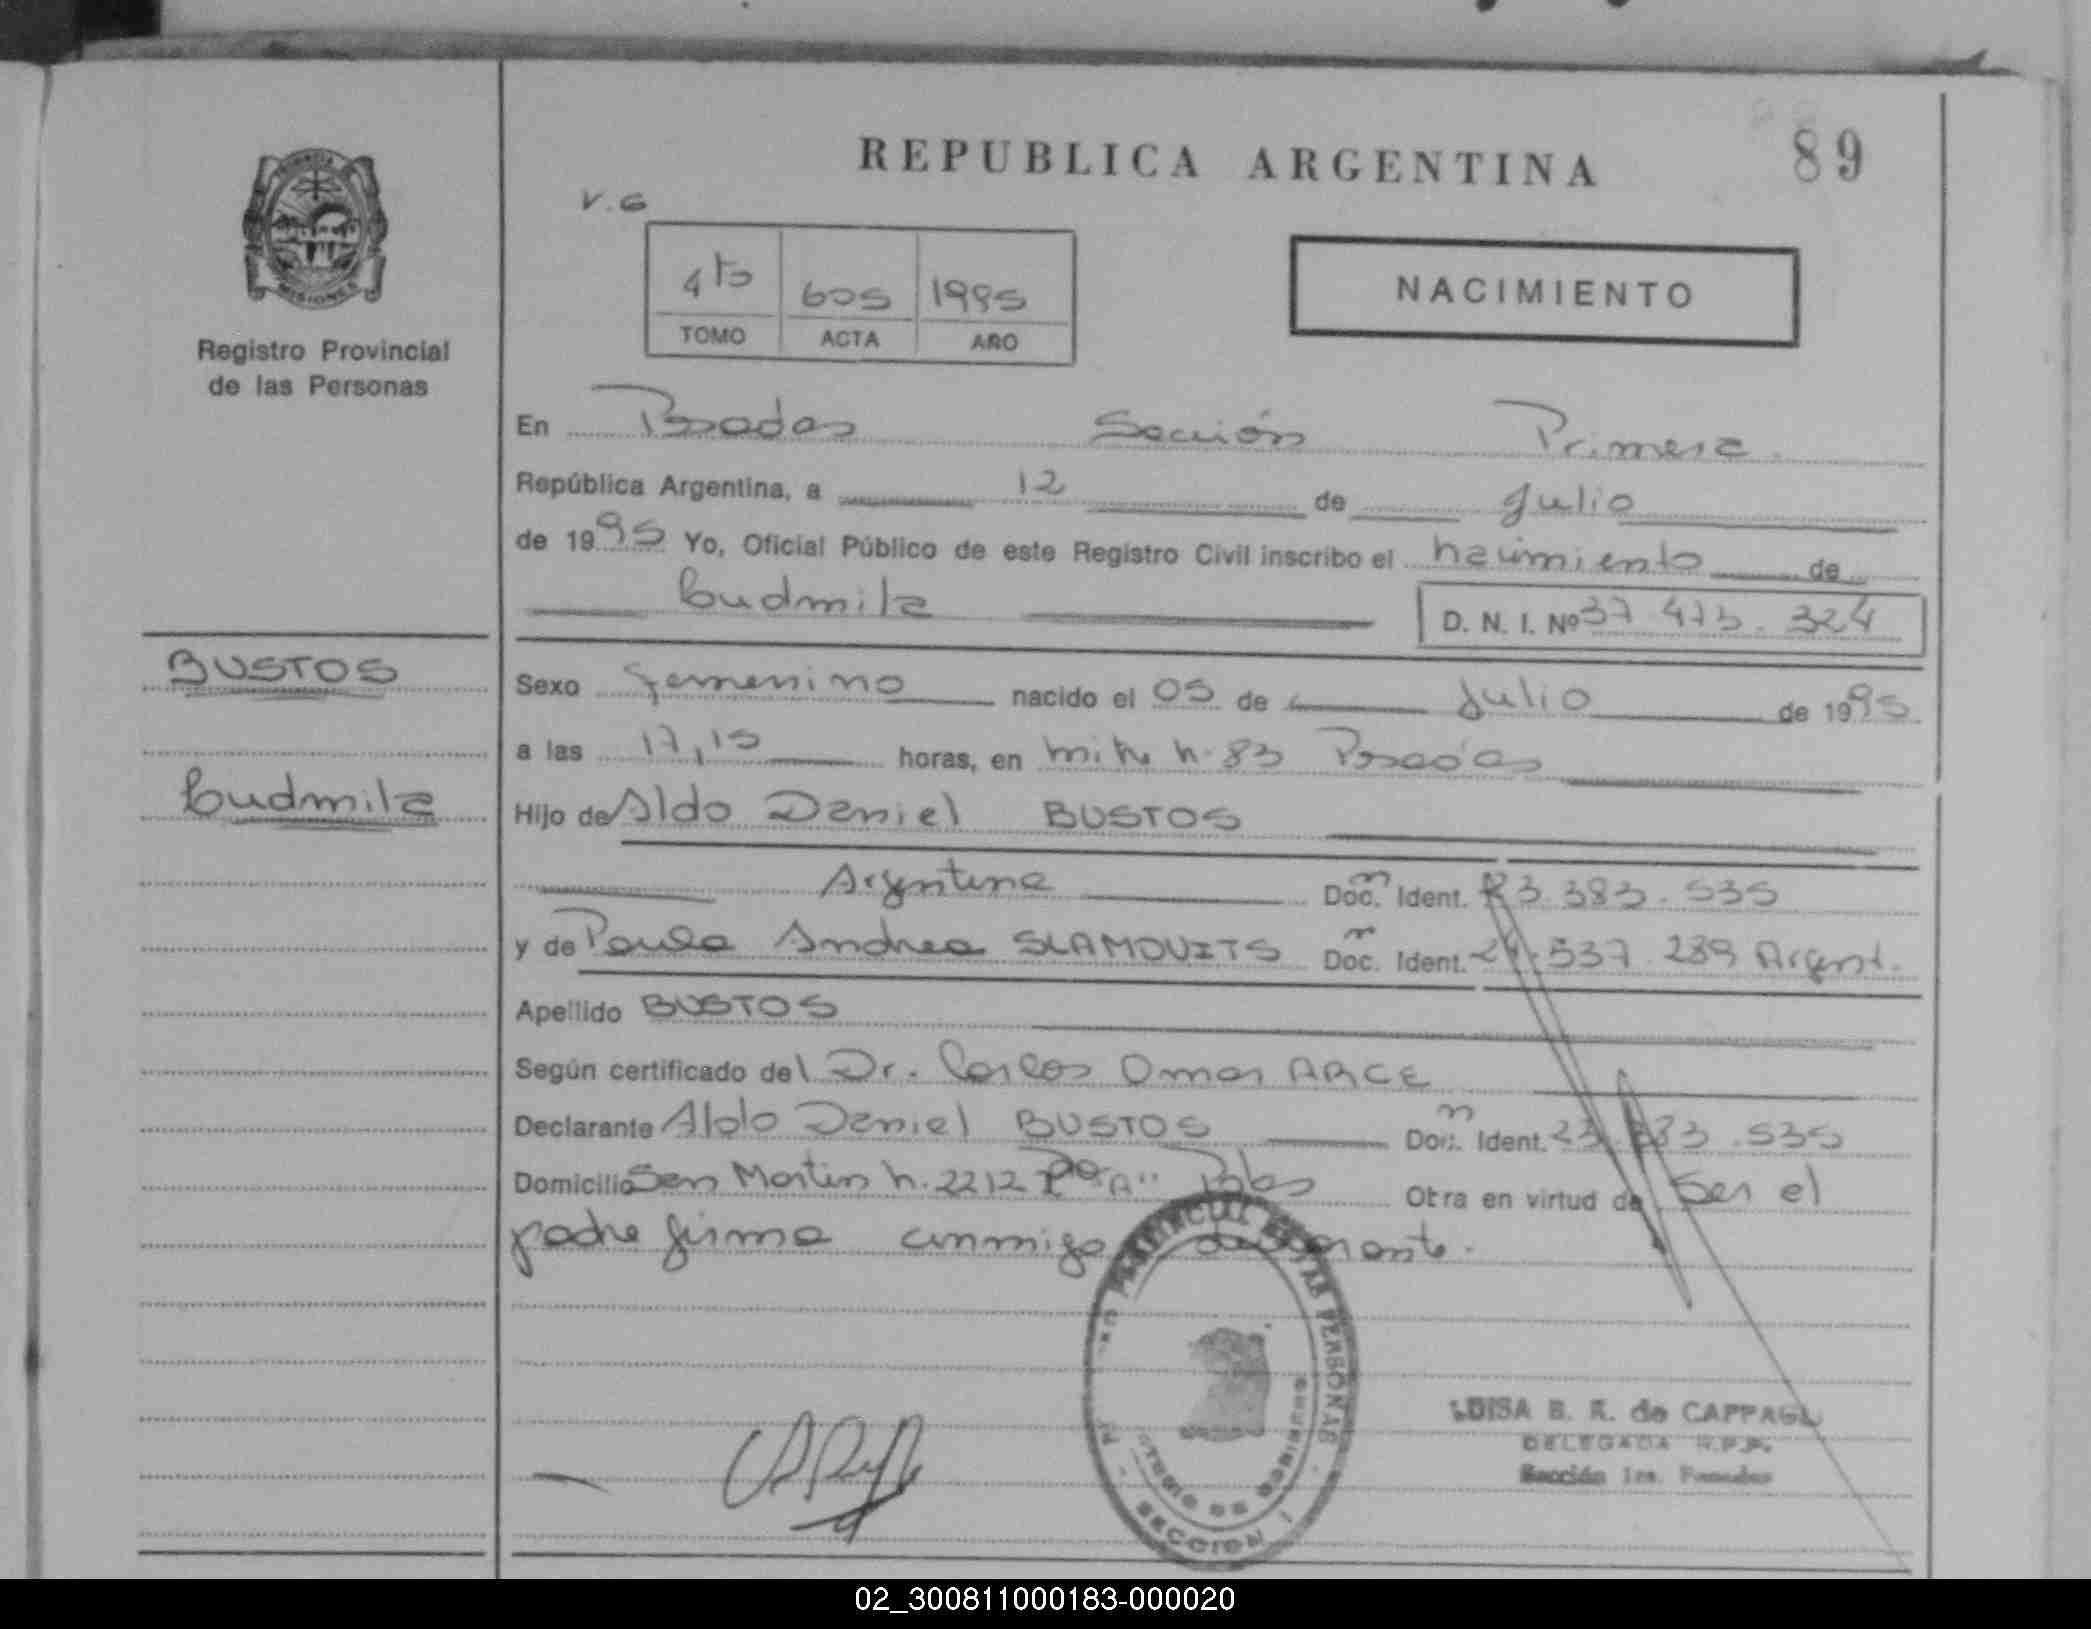 REPUBLICA ARGENTINA
89
V.G
4to 605 1995
TOMO ACTA AÑO
NACIMIENTO
MISIONES
Registro Provincial
de las Personas
En Posadas Sección Primera
República Argentina, a 12 de Julio
de 1995 Yo, Oficial Público de este Registro Civil inscribo el nacimiento de
Ludmila
D. N. I. Nº 37.473.324
BUSTOS
Ludmila
Sexo femenino nacido el 05 de Julio de 1995
a las 17,15 horas, en Mitre n. 83 Posadas
Hijo de Aldo Daniel BUSTOS
Argentina Doc. Ident. 23.383.535
y de Paula Andrea SLAMOVITS Doc. Ident. 24.537.289 Argent.
Apellido BUSTOS
Según certificado del Dr. Carlos Omar ARCE
Declarante Aldo Daniel BUSTOS Doc. Ident. 23.383.535
Domicilio San Martin n. 2212 Pº "A" Pdas Obra en virtud de Ser el
padre firma conmigo declarante.
PERSONAS
SECCION I
LUISA B. R. de CAPPAGLI
DELEGADA R.P.P.
Sección 1ra. Posadas
02_300811000183-000020